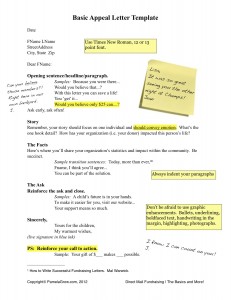 Basic Appeal Letter Template
Date
FName LName
StreetAddress
City, State Zip
Use Times New Roman, 12 or 13
point font.
Dear FName:
Opening sentence/headline/paragraph.
Samples: Because you were there...
Would you believe that...?
With this letter you can save a life!
You 'get'it...
Would you believe only $25 can...?
Ask early, ask often!
Story
Remember, your story should focus on one individual and should convey emotion. What's the
one book detail? How has the organization (i.e. your donor) impacted this person's life?
The Facts
Here's where you'll share your organization's statistics and impact within the community. Be
sure to incorporate.
Sample transition sentences: Today, more than ever,*
Frankly, I think you'll agree...
You can be part of the solution.
Always indent your paragraphs
The Ask
Reinforce the ask and close.
Samples: A child's future is in your hands.
To make it easier for you, visit our website...
Your support means so much.
Sincerely,
Yours for the children,
My warmest wishes,
(live signature in blue ink)
Don't be afraid to use graphic
enhancements. Bullets, underlining,
boldfaced text, handwriting in the
margin, highlighting, photographs.
PS: Reinforce your call to action.
Sample: Your gift of $___ makes ___ possible.
I know, I can count on you!
* How to Write Successful Fundraising Letters. Mal Warwick.
Copyright© PamelaGrow.com, 2012
Direct Mail Fundraising | The Basics and More!